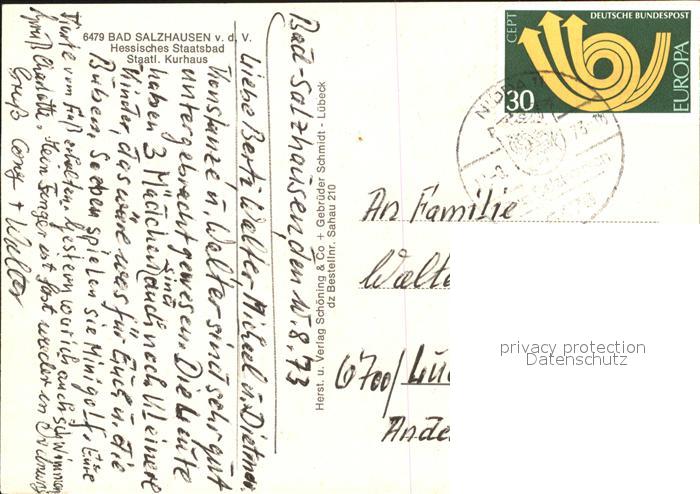 6479 BAD SALZHAUSEN v. d. V.
Hessisches Staatsbad
Staatl. Kurhaus
Bad-Salzhausen, den 10.8.73
Liebe Berti, Walter, Michael u. Dietmar.
Konstanze u. Walter sind sehr gut
untergebracht gewesen. Die Leute
haben 3 Mädchen (auch noch kleinere
sind
Kinder, das wäre was für Euch u. die
Buben. Soeben spielen sie Minigolf. Eure
Karte vom Füß erhalten. Gestern war ich auch schwimmen
Mein Finger ist fast wieder in Ordnung
Gruß Charlotte.
Gruß Conny + Walter
Herst. u. Verlag Schöning & Co + Gebrüder Schmidt - Lübeck
dz Bestellnr. Sahau 210
CEPT
DEUTSCHE BUNDESPOST
EUROPA
30
An Familie
Walte
6700/ Lud
Ande
privacy protection
Datenschutz